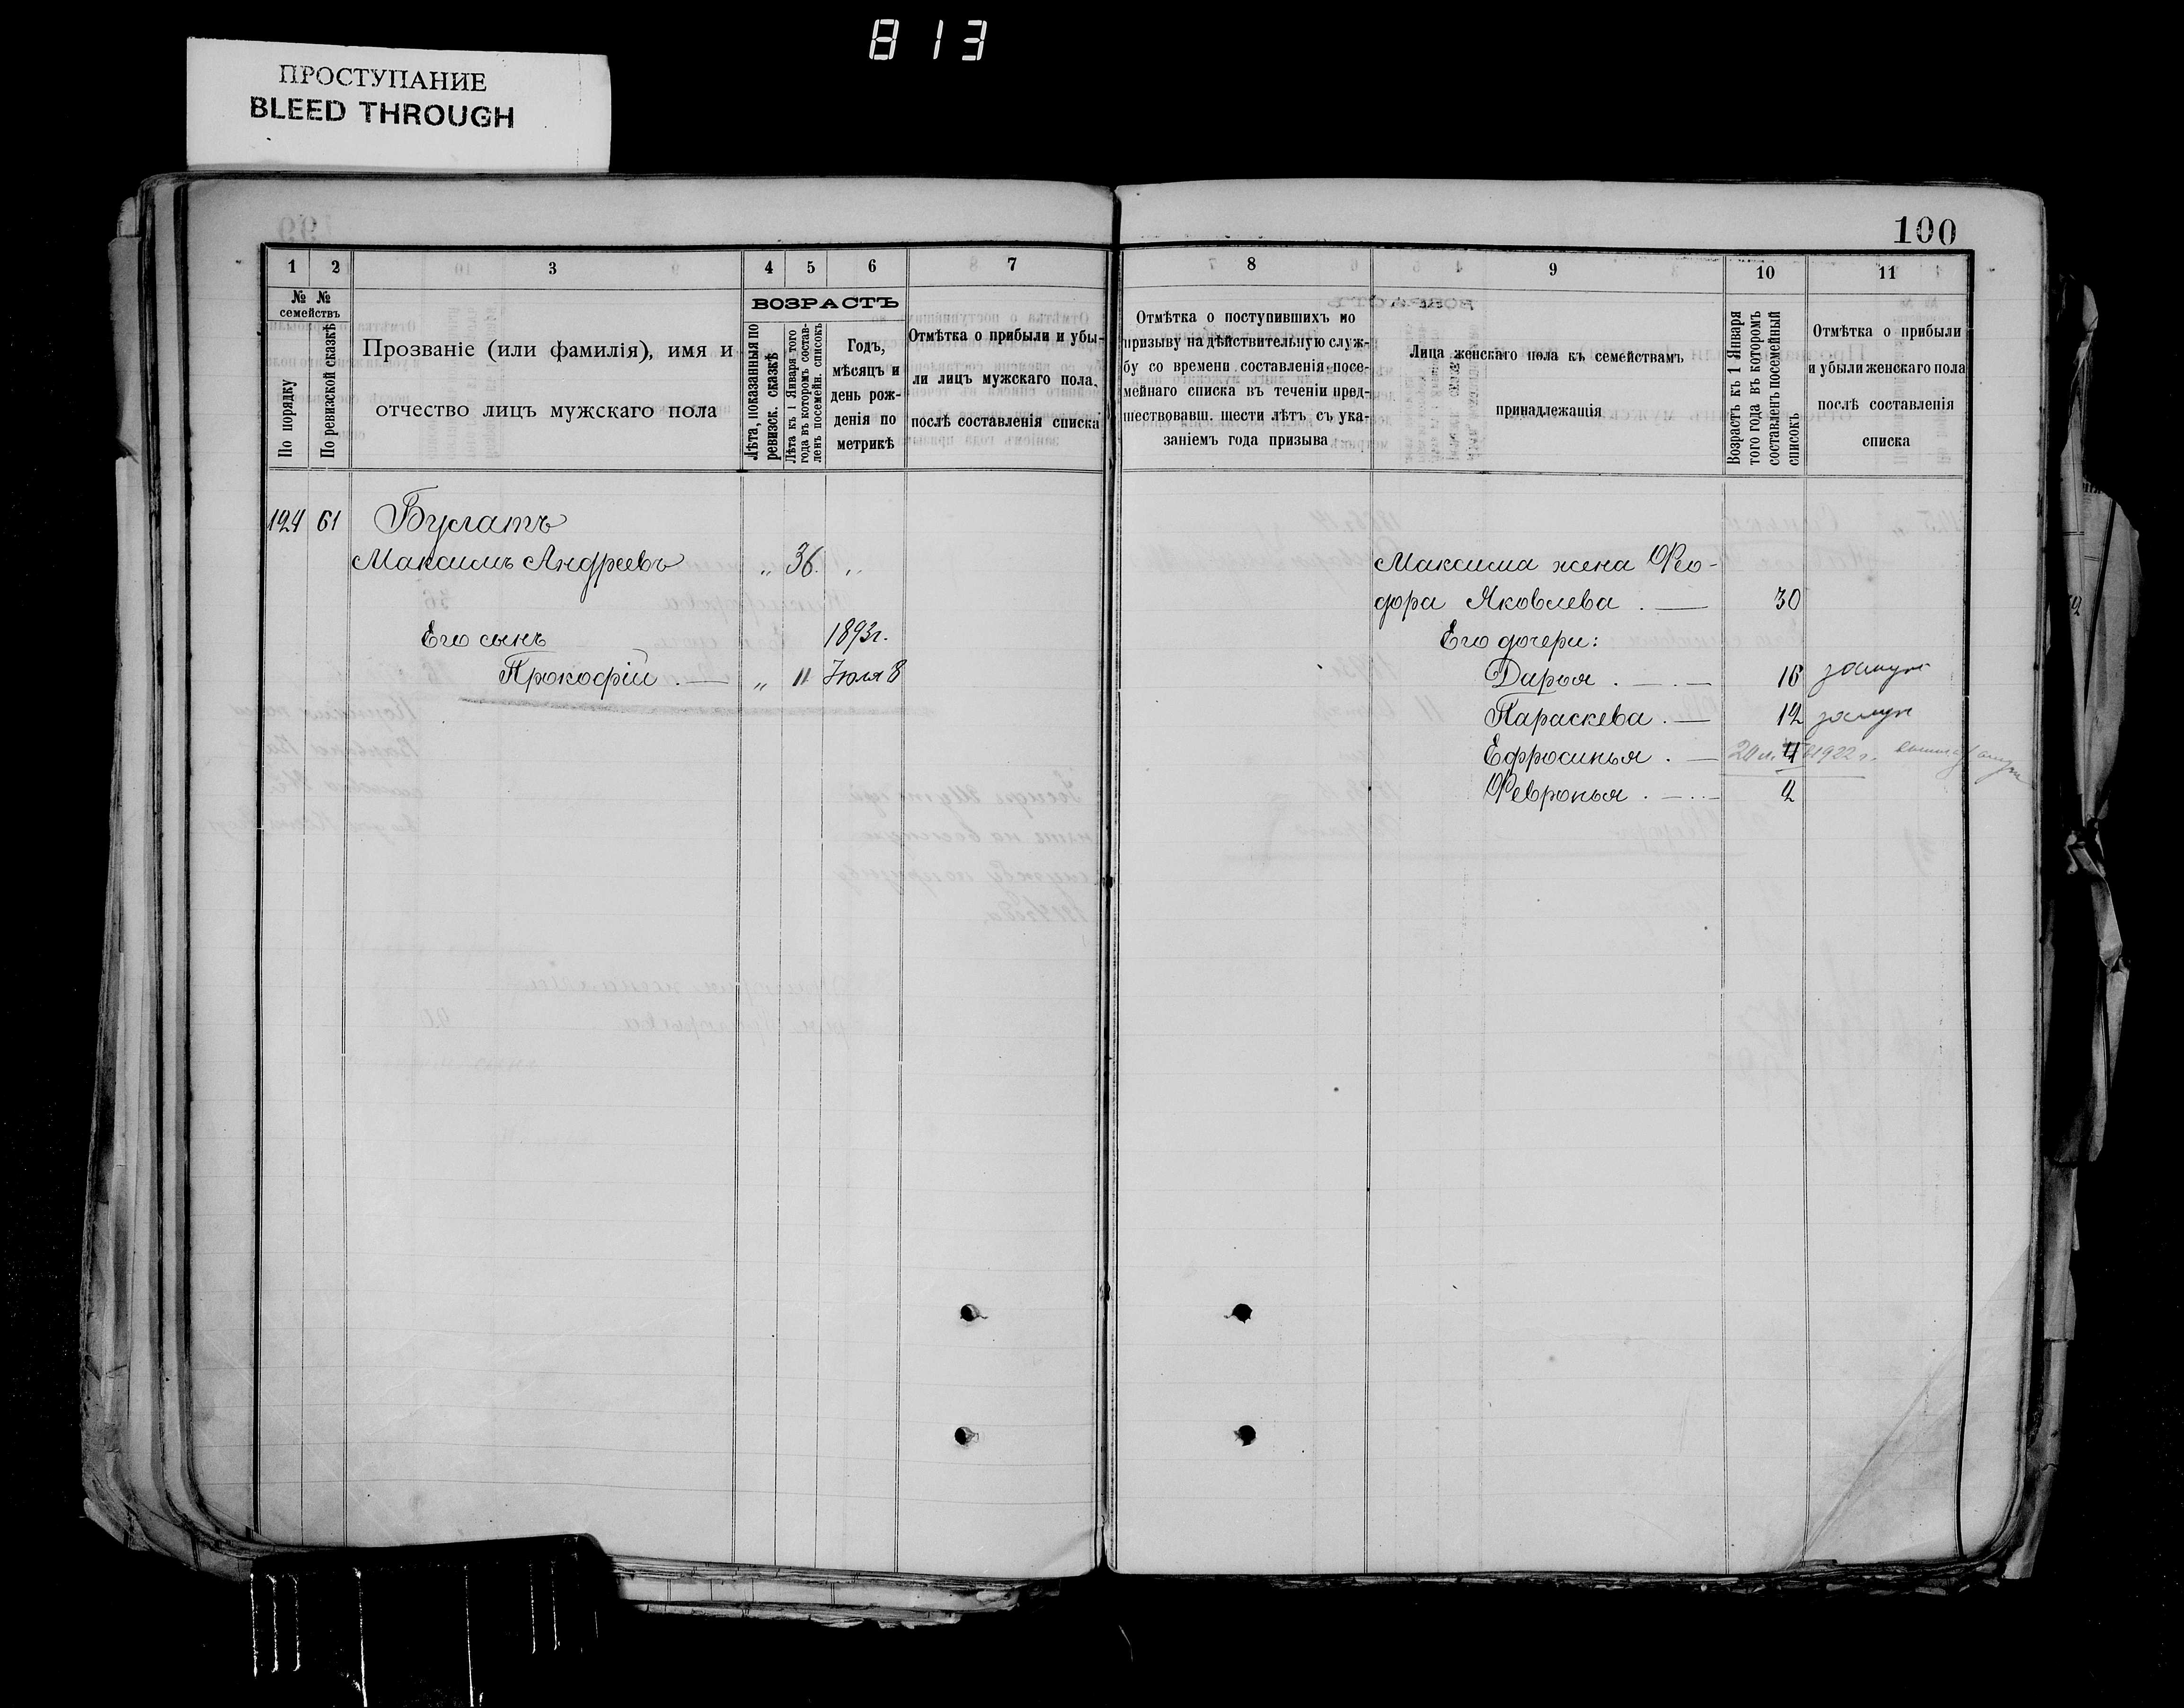 813
ПРОСТУПАНИЕ
BLEED THROUGH
100
1 2 3 4 5 6 7
№ № семействъ
По порядку
По ревизской сказкѣ
Прозваніе (или фамилія), имя и
отчество лицъ мужскаго пола
ВОЗРАСТЪ
Лѣта, показанныя по
ревизск. сказкѣ
Лѣта къ 1 Января того
года въ которомъ состав-
ленъ посемейн. списокъ
Годъ,
мѣсяцъ и
день рож-
денія по
метрикѣ
Отмѣтка о прибыли и убы-
ли лицъ мужскаго пола,
послѣ составленія списка
124 61 Булатъ
Максимъ Андреевъ „ 36. „
Его сынъ 1893г.
Прокофій . — „ 11 Іюля 8
8 9 10 11
Отмѣтка о поступившихъ по
призыву на дѣйствительную служ-
бу со времени составленія посе-
мейнаго списка въ теченіи пред-
шествовавш. шести лѣтъ съ ука-
заніемъ года призыва
Лица женскаго пола къ семействамъ
принадлежащія
Возрастъ къ 1 Января
того года въ которомъ
составленъ посемейный
списокъ
Отмѣтка о прибыли
и убыли женскаго пола
послѣ составленія
списка
Максима жена Ѳео-
дора Яковлева . — 30
Его дочери:
Дарья . — . — 16 замуж
Параскева . — 12 замуж
Ефросинья . — 4 1922 г. вышла замуж
Февронья . — .. — 2